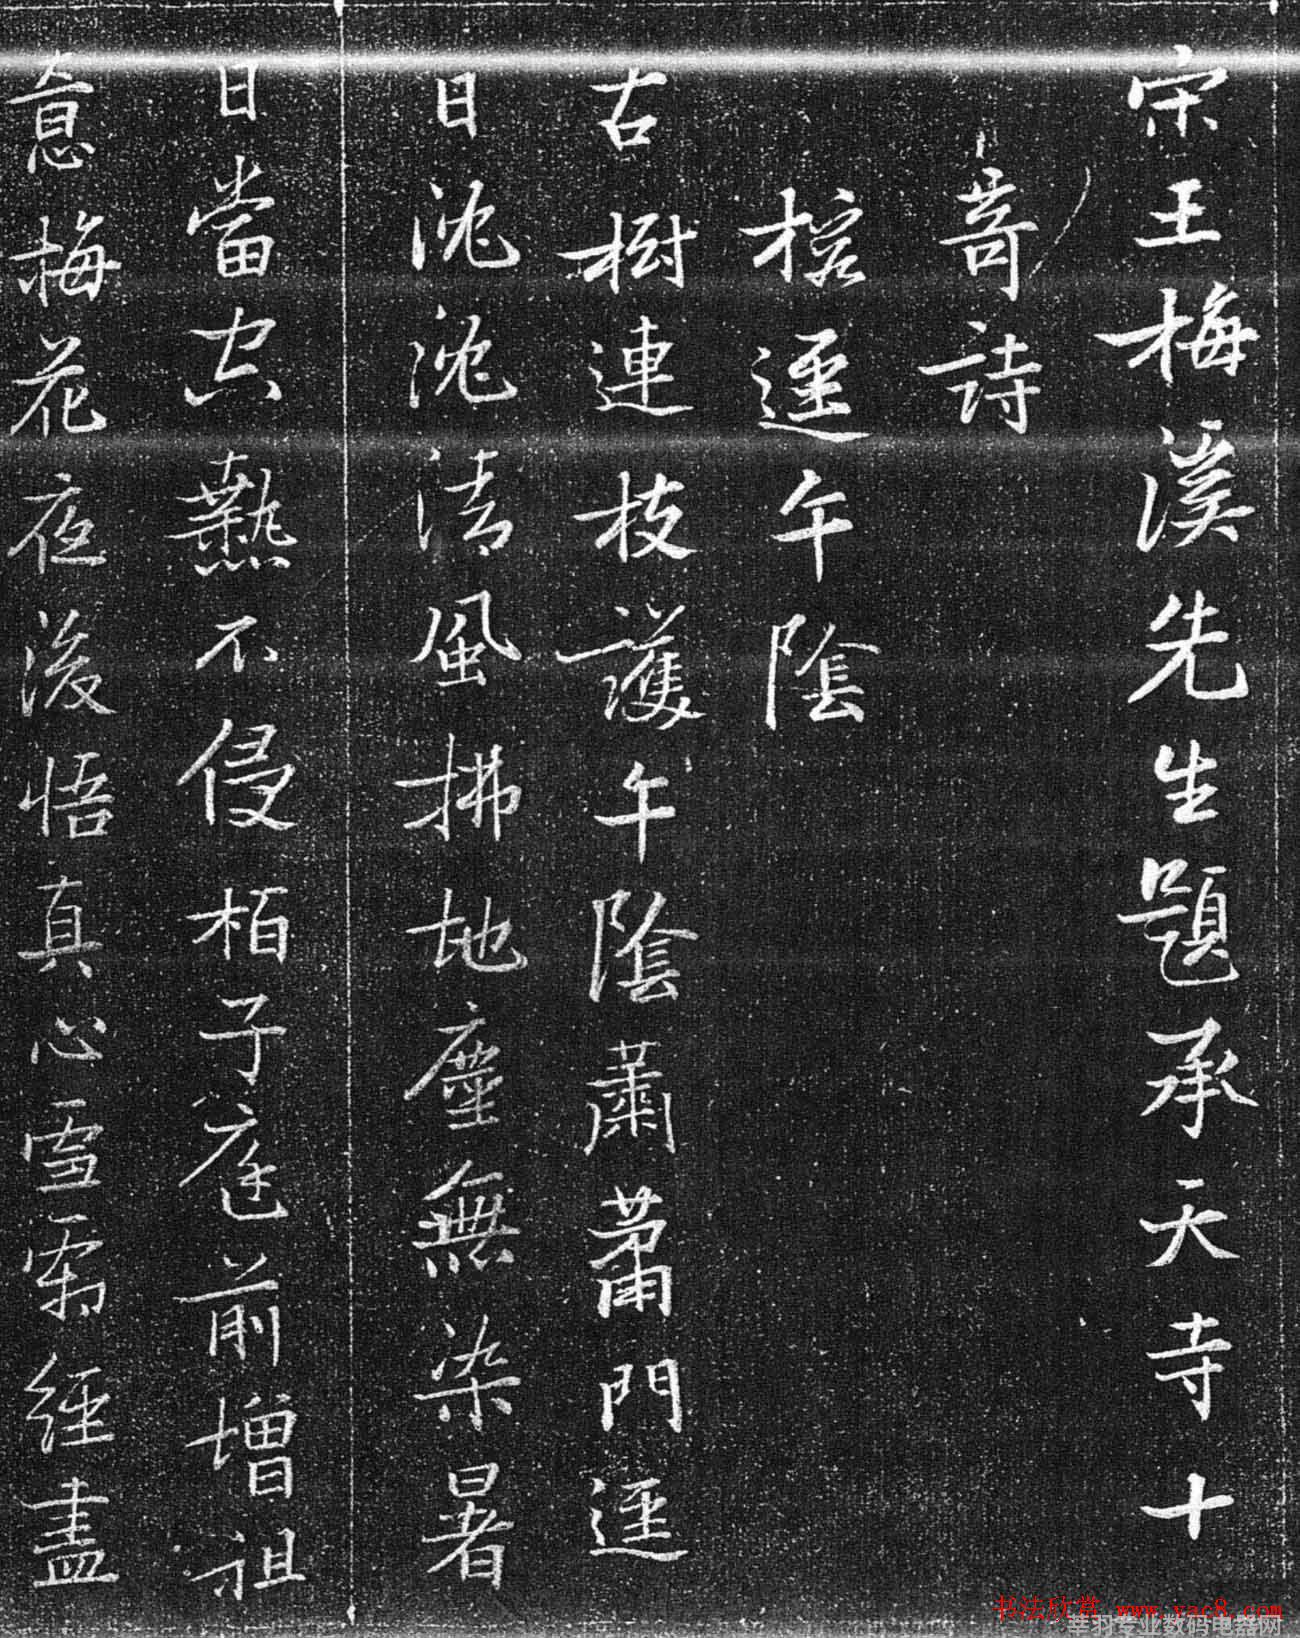 宋王梅溪先生題承天寺十
奇詩
榕逕午陰
古樹連枝護午陰蕭蕭門逕
日沈沈清風拂地塵無染暑
日當空熱不侵栢子庭前增祖
意梅花夜後悟真心雪霜經盡
书法欣赏 www.yac8.com
莘羽专业数码电器网